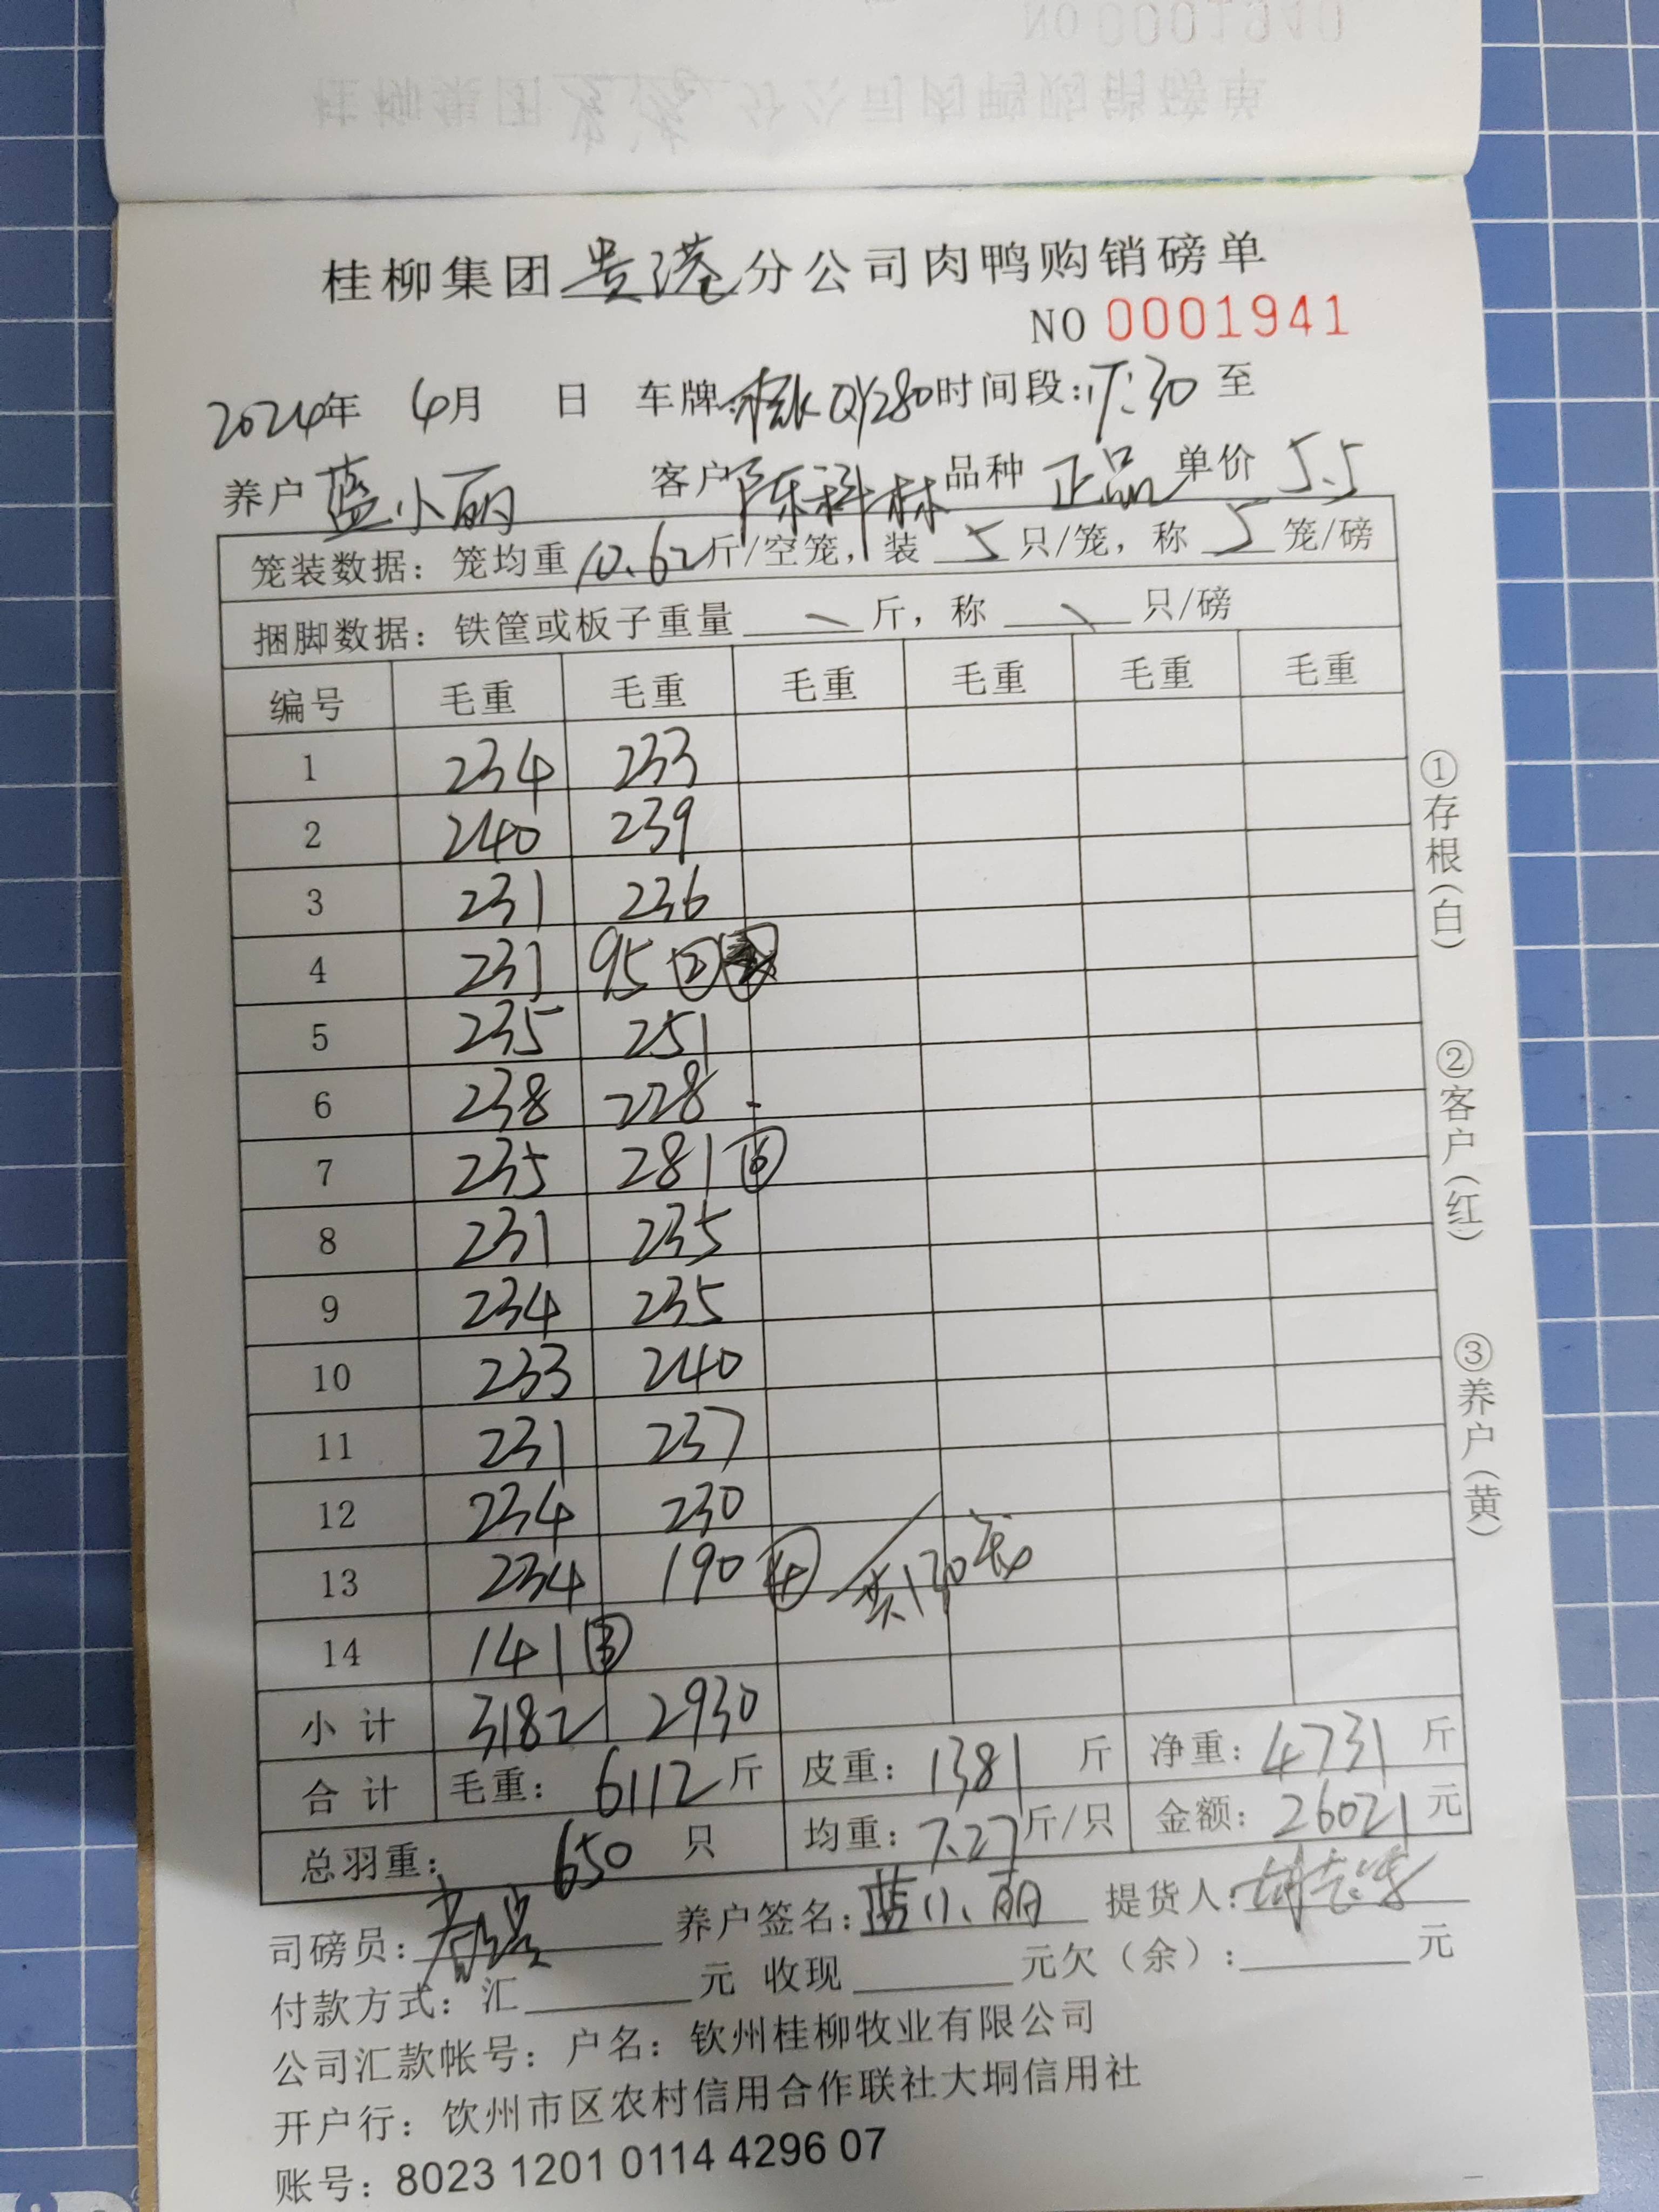 NO 0001940
桂柳集团 分公司肉鸭购销磅单
桂柳集团贵港分公司肉鸭购销磅单
NO 0001941
2024年 4月 日 车牌:桂KQY280时间段:17:30 至
养户 蓝小丽 客户 陈科林 品种 正品 单价 5.5
笼装数据：笼均重10.62斤/空笼，装 5 只/笼，称 5 笼/磅
捆脚数据：铁筐或板子重量 \ 斤，称 \ 只/磅
编号 毛重 毛重 毛重 毛重 毛重 毛重
1 234 233
2 240 239
3 231 236
4 231 95 ②
5 235 251
6 238 228 -
7 235 281 ⑥
8 231 235
9 234 235
10 233 240
11 231 237
12 234 230
13 234 190 ④ 共130笼
14 141 ③
小计 3182 2930
合计 毛重：6112斤 皮重：1381 斤 净重：4731 斤
总羽重： 650 只 均重：7.27斤/只 金额：26021 元
司磅员： 养户签名：蓝小丽 提货人：
付款方式：汇 元 收现 元欠（余）： 元
公司汇款帐号：户名：钦州桂柳牧业有限公司
开户行：钦州市区农村信用合作联社大垌信用社
账号：8023 1201 0114 4296 07
①存根（白） ②客户（红） ③养户（黄）